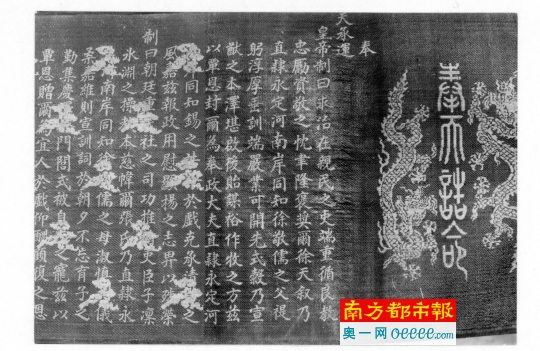 奉天誥命
奉
天承運
皇帝制曰求治在親民之吏端重循良教
忠勵資敬之忱聿隆褒獎爾徐天叙乃
直隸永定河南岸同知徐敬儒之父禔
躬淳厚垂訓端嚴業可開先式穀乃宣
猷之本澤堪啟後貽謀裕作牧之方茲
以覃恩封爾為奉政大夫直隸永定河
岸同知錫之誥命於戲克承清白之
風嘉茲報政用慰顯揚之志畀以殊榮
制曰朝廷重民社之司功推循吏臣子凜
冰淵之操教本慈幃爾張氏乃直隸永
定河南岸同知徐敬儒之母淑慎其儀
柔嘉維則宣訓詞於朝夕不忘育子之
勤集慶澤於門閭式被自天之寵茲以
覃恩贈爾為宜人於戲仰酬顧復之恩
南方都市報
奥一网 oeeee.com